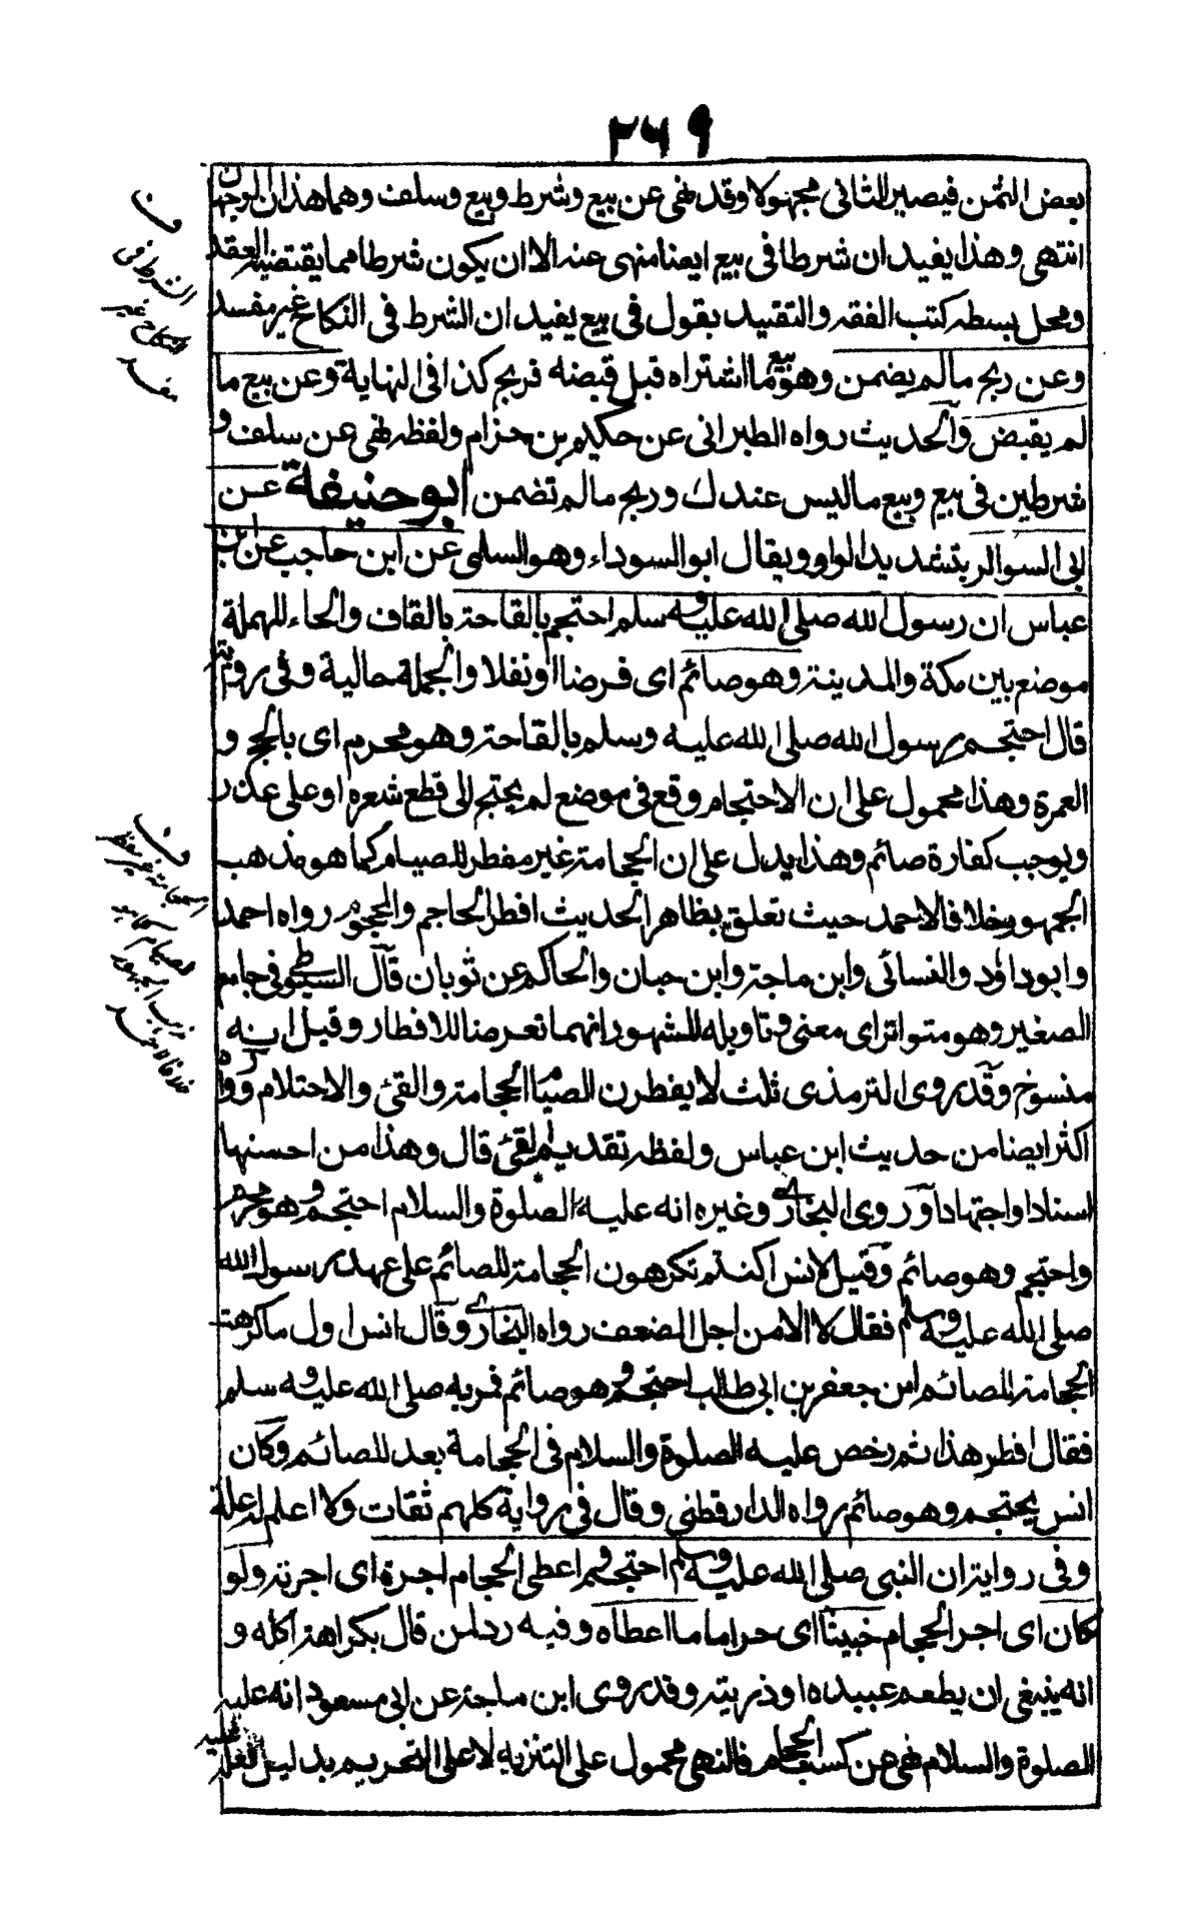 ٢٦٩
بعض الثمن فيصير الثاني مجهولا وقد نهى عن بيع وشرط وبيع وسلف وهما هذان الوجهان
انتهى وهذا يفيد ان شرطا في بيع ايضا منهى عنه الا ان يكون شرطا مما يقتضيه العقد
ومحل بسطه كتب الفقه والتقييد بقول في بيع يفيد ان الشرط في النكاح غير مفسد
وعن ربح مالم يضمن وهو بيع ما اشتراه قبل قبضه فربح كذا في النهاية وعن بيع ما
لم يقبض والحديث رواه الطبراني عن حكيم بن حزام ولفظه نهى عن سلف و
شرطين في بيع وبيع ماليس عندك وربح مالم تضمن ابو حنيفة عن
ابي السوار بتشديد الواو ويقال ابو السوداء وهو السلمي عن ابن حاجب عن ابن
عباس ان رسول الله صلى الله عليه وسلم احتجم بالقاحة بالقاف والحاء المهملة
موضع بين مكة والمدينة وهو صائم اى فرضا او نفلا والجملة حالية وفي رواية
قال احتجم رسول الله صلى الله عليه وسلم بالقاحة وهو محرم اى بالحج و
العمرة وهذا محمول على ان الاحتجام وقع في موضع لم يحتج الى قطع شعره او على عذر
ويوجب كفارة صائم وهذا يدل على ان الحجامة غير مفطر للصيام كما هو مذهب
الجمهور خلافا لاحمد حيث تعلق بظاهر الحديث افطر الحاجم والمحجوم رواه احمد
وابوداود والنسائي وابن ماجة وابن حبان والحاكم عن ثوبان قال السيوطي في جامع
الصغير وهو متواتر اى معنى وتاويله المشهور انهما تعرضا للافطار وقيل انه
منسوخ وقد روى الترمذى ثلث لا يفطرن الصيام الحجامة والقئ والاحتلام ورواه
اكثر ايضا من حديث ابن عباس ولفظه تقديم القئ قال وهذا من احسنها
اسنادا واجتهادا وروى البخاري وغيره انه عليه الصلوة والسلام احتجم وهو محرم
واحتجم وهو صائم وقيل لانس اكنتم تكرهون الحجامة للصائم على عهد رسول الله
صلى الله عليه وسلم فقال لا الا من اجل الضعف رواه البخاري وقال انس اول ما كرهت
الحجامة للصائم ان جعفر بن ابي طالب احتجم وهو صائم فمر به صلى الله عليه وسلم
فقال افطر هذا ثم رخص عليه الصلوة والسلام في الحجامة بعد للصائم وكان
انس يحتجم وهو صائم رواه الدارقطني وقال في رواية كلهم ثقات ولا اعلم له علة
وفي رواية ان النبي صلى الله عليه وسلم احتجم واعطى الحجام اجرة اى اجرته ولو
كان اى اجر الحجام خبيثا اى حراما ما اعطاه وفيه رد لمن قال بكراهة اكله و
انه ينبغي ان يطعم عبيده او ذريته وقد روى ابن ماجة عن ابي مسعود انه عليه
الصلوة والسلام نهى عن كسب الحجام فالنهى محمول على التنزيه لا على التحريم بدليل فعله
ف
الشرط في
النكاح غير
مفسد
ف
الحجامة غير مفطر
للصيام كما هو
مذهب الجمهور
خلافا لاحمد